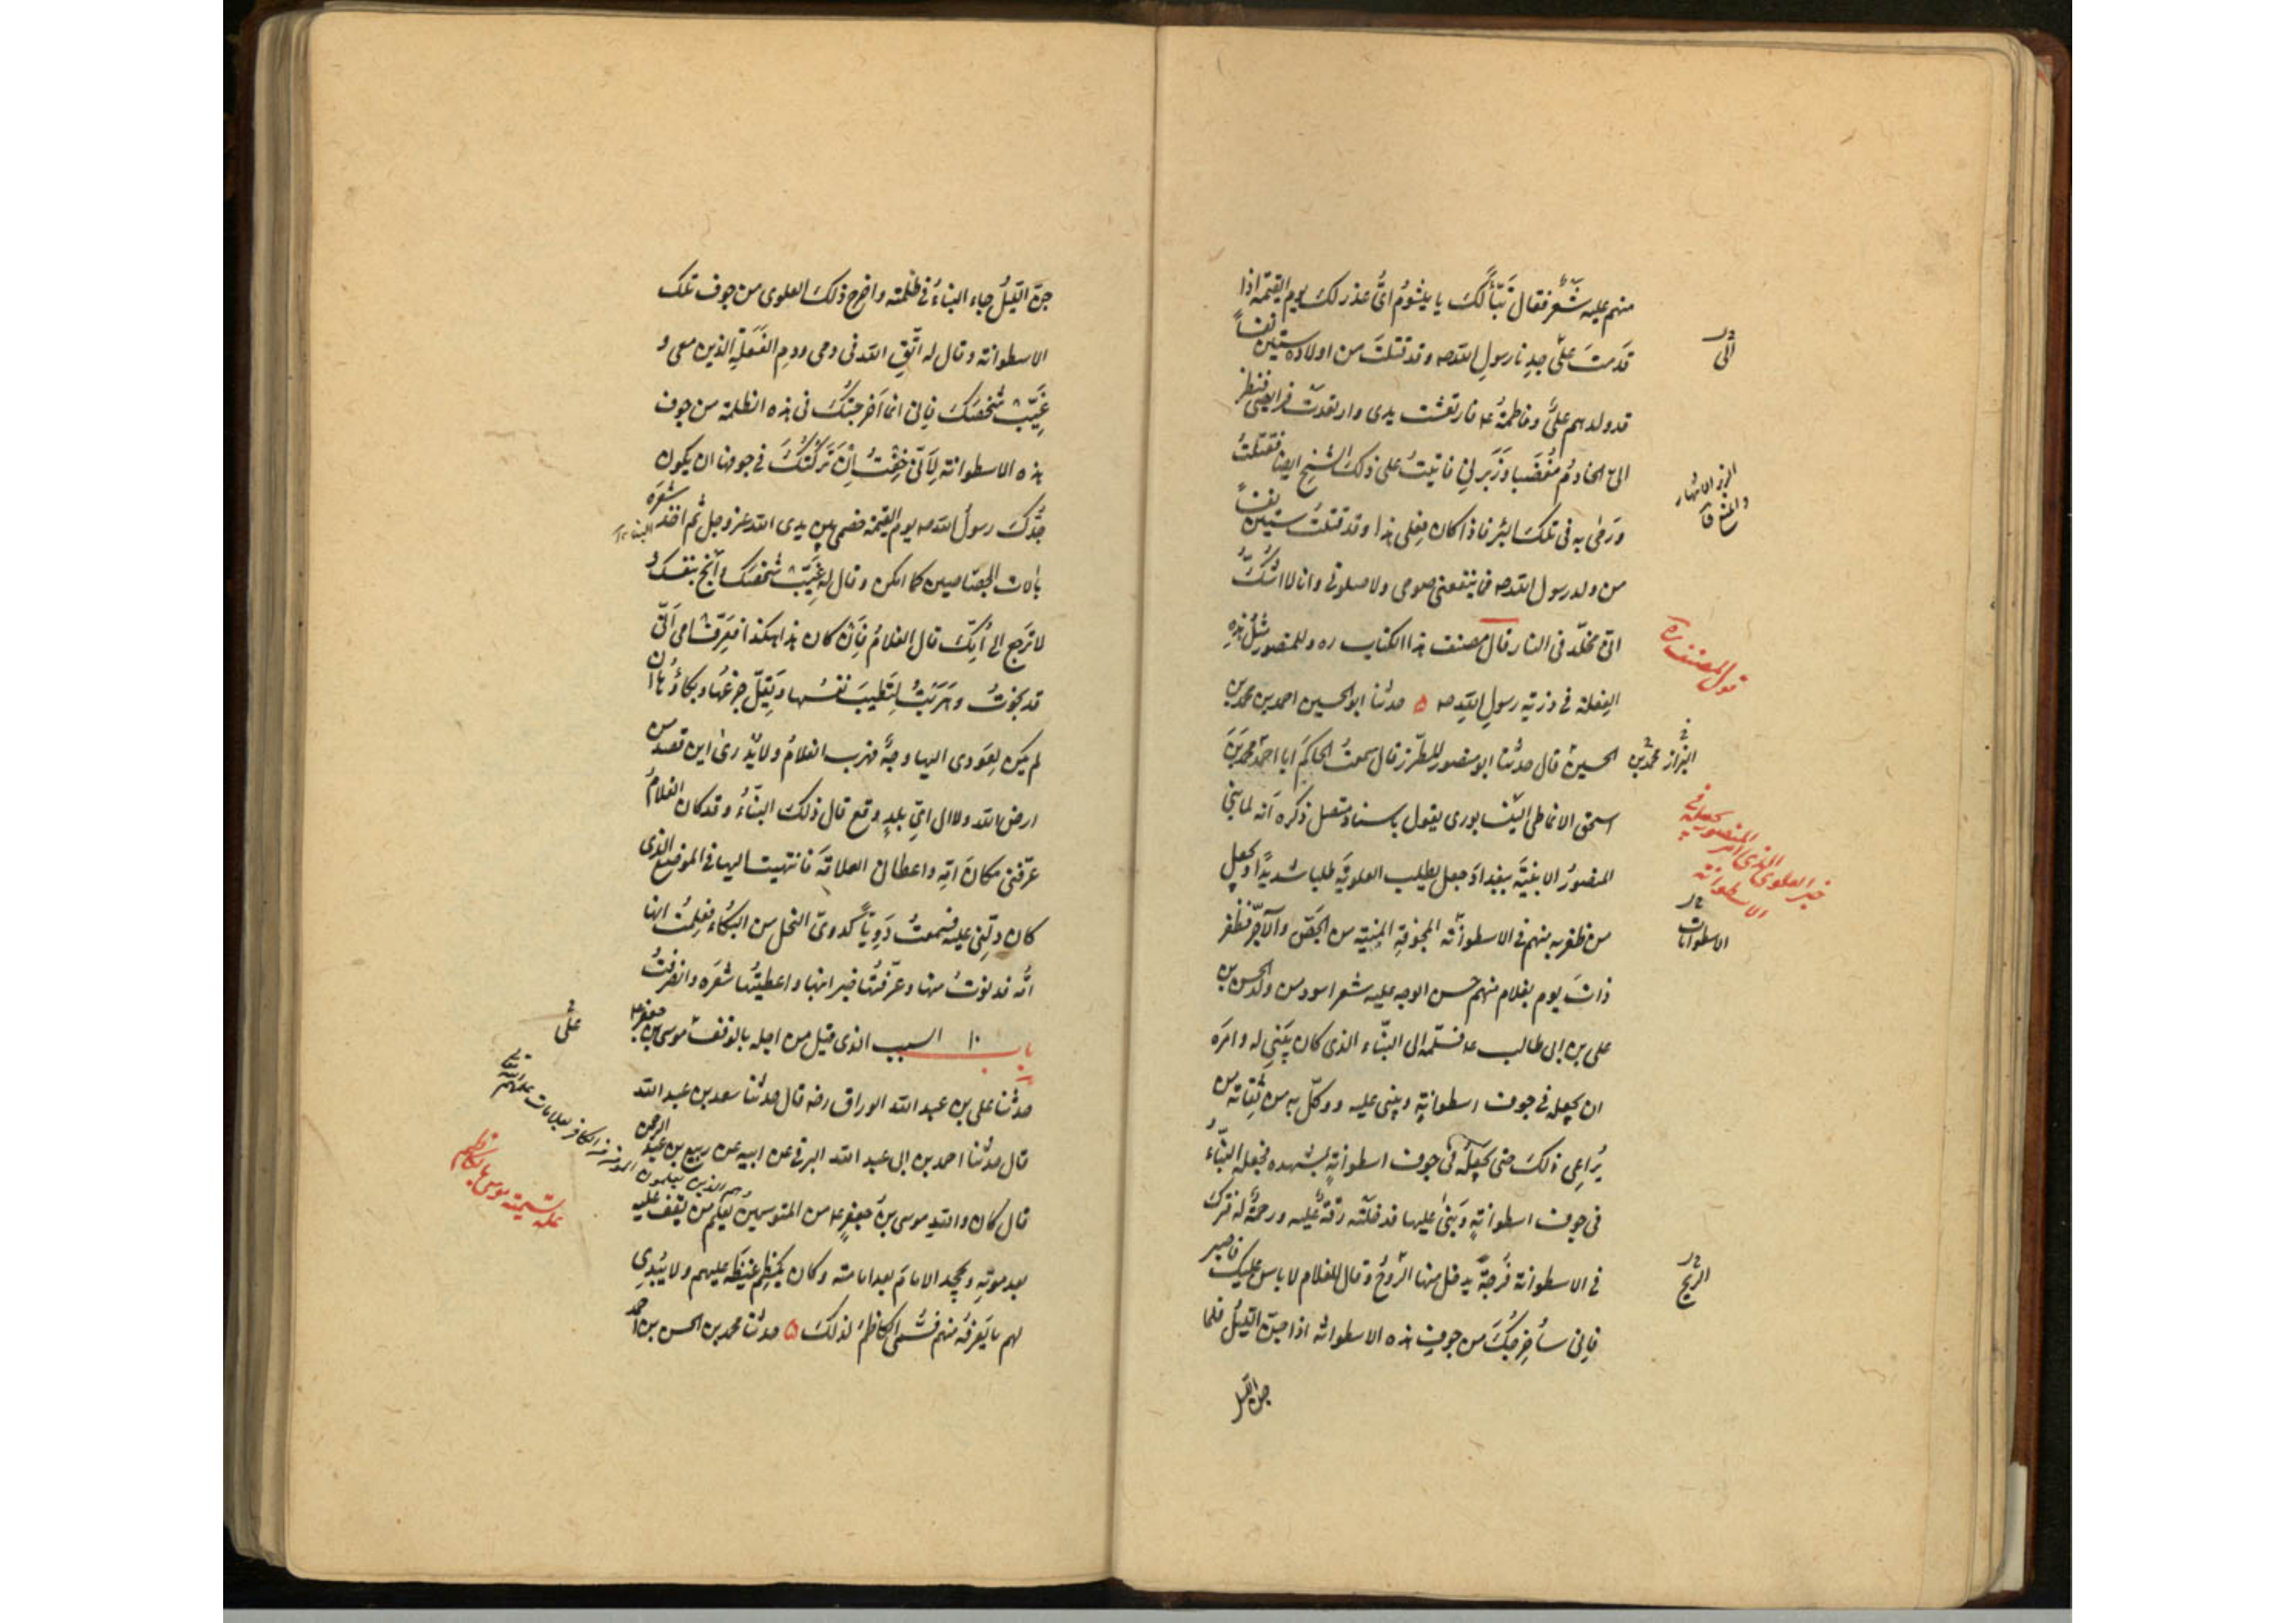 منهم عليه شَعر فقال تَبّاً لكَ يا ميشوم اىّ عذر لك يوم القيمة اذا
قدمتَ علىٰ جدنا رسول اللّه ص و قد قتلتَ من اولاده ستين نفساً
قد ولدهم علىّ و فاطمة ع فارتعشت يدى وارتعدت فرايصى فنظر
الىّ الخادم مُغضَبا و زَبَرنى فاتيتُ على ذلك الشيخ ايضا فقتلتُه
و رمىٰ به فى تلك البئر فاذا كان فعلى هذا و قد قتلت ستين نفساً
من ولد رسول اللّه ص فما ينفعنى صومى ولا صلوتى وانا لا اشكّ
انّى مخلّد فى النار قال مصنف هذا الكتاب ره وللمنصور مثل هذه
الفعلة فى ذرّية رسول اللّه ص ۵ حدثنا ابوالحسين احمد بن محمد بن
الحسين قال حدثنا ابو منصور المطرز قال سمعتُ الحاكمَ ابا احمد محمد بن
اسحق الانماطى النيسابورى يقول باسناد متصل ذكره انّه لما بنى
المنصورُ الابنيةَ ببغداد جعل يطلب العلويّة طلبا شديداً و يجعل
من ظفر به منهم فى الاسطوانة المجوفةِ المبنية من الجصّ والآجرّ فظفر
ذاتَ يوم بغلام منهم حسن الوجه عليه شعر اسود من ولد الحسن بن
على بن ابى طالب ع فسلّمه الى البنّاء الذى كان يبنى له و امَره
ان يجعله فى جوف اسطوانةٍ ويبنى عليه و وكّل به من ثقاته من
يُراعى ذلك حتى يجعلَه فى جوف اسطوانةٍ بمشهده فجعله البنّاءُ
فى جوف اسطوانةٍ وبنىٰ عليها فدخلَتْه رِقّةٌ عليه ورحمةٌ له فترك
فى الاسطوانة فُرجةً يدخل منها الرَّوحُ و قال للغلام لا باس عليك فاصبر
فانى ساُخرجُكَ من جوف هذه الاسطوانة اذا جنّ الليلُ فلما
جن الليل
الىّ
قول المصنف ره
البزاز محمد بن
خبر العلوى الذى امر المنصور بجعله فى
الاسطوانة
الاسطوانات
الريح
جنّ الليلُ جاء البنّاءُ فى ظلمته و اخرج ذلك العلوى من جوف تلك
الاسطوانة و قال له اتّقِ اللّه فى دمى و دمِ الفَعَلةِ الذين معى و
غيّبْ شخصَكَ فانى انما اَخرجتُكَ فى هذه الظلمة من جوف
هذه الاسطوانة لِاَنّى خِفتُ اِنْ تَركتُكَ فى جوفها ان يكون
جدُّكَ رسولُ اللّه ص يوم القيمة خصمى بين يدى اللّه عز وجل ثم اخذ شعرَه
بآلات الجصّاصين كما امكن و قال له غيّبْ شخصَك و اُنجُ بنفسك و
لا ترجع الى اُمّكَ قال الغلامُ فاِنْ كان هذا هكذا فعرِّفْ امى اَنّى
قد نجوتُ و هَربتُ لِتَطيبَ نفسُها و يَقِلّ جزعُها و بكاؤُها ان
لم يكن لِعَودى اليها وجهٌ فهرب الغلامُ و لا يُدرىٰ اين قصد من
ارض اللّه و لا الى اىِّ بلدٍ وقع قال ذلك البنّاءُ و قد كان الغلامُ
عرّفنى مكانَ اُمّه و اعطانى العلامةَ فانتهيت اليها فى الموضع الذى
كان دلّنى عليه فسمعتُ دَوِيّاً كدوىّ النحل من البكاء فعلمتُ انها
اُمّه فدنوتُ منها و عرّفتُها خبر ابنها و اعطيتُها شعرَه و انصرفتُ
باب ١٠ السبب الذى قيل من اجله بالوقف على موسى بن جعفر ع
حدثنا على بن عبد اللّه الوراق رضه قال حدثنا سعد بن عبد اللّه
قال حدثنا احمد بن ابى عبد اللّه البرقى عن ابيه عن ربيع بن عبد الرحمن
قال كان واللّهِ موسى بنُ جعفرٍ ع من المتوسمين يعلم من يقف عليه
بعد موته و يجحد الامامَ بعد امامته و كان يكظم غيظَه عليهم و لا يُبْدِى
لهم ما يَعرفُه منهم فسُمّى الكاظمَ لذلك ۵ حدثنا محمد بن الحسن بن احمد
على
علة تسميته موسى بالكاظم